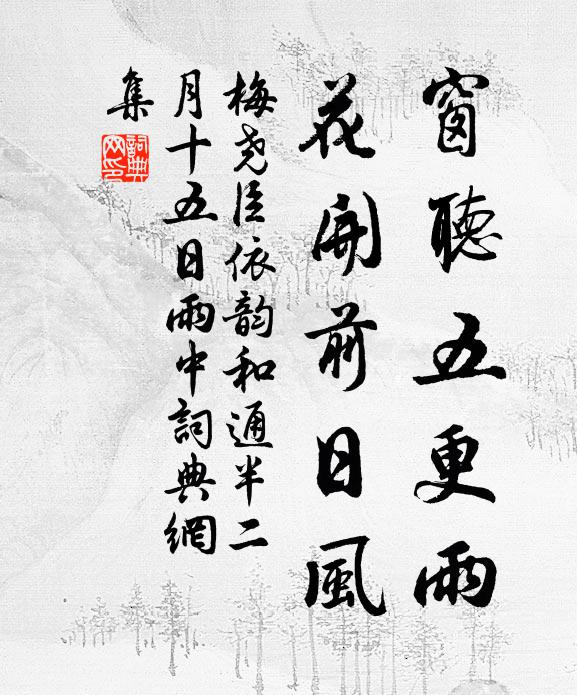 窗聽五更雨
花開前日風
梅堯臣依韵和通半二
月十五日雨中詞典網
集
詞典网印